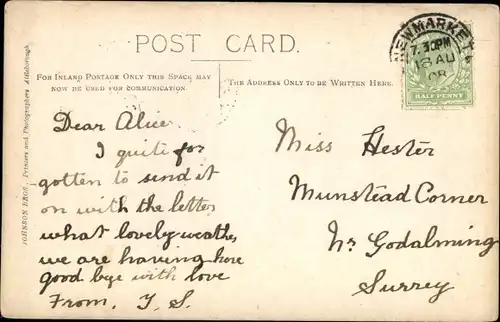 POST CARD.
FOR INLAND POSTAGE ONLY THIS SPACE MAY
NOW BE USED FOR COMMUNICATION.
THE ADDRESS ONLY TO BE WRITTEN HERE.
JOHNSON BROS., Printers and Photographers, Attleborough.
NEWMARKET
7.30PM
18 AU
08
HALF PENNY
Dear Alice
I quite for
gotten to send it
on with the letter
what lovely weather
we are having here
good bye with love
From, J. S.
Miss Hester
Munstead Corner
Nr Godalming
Surrey